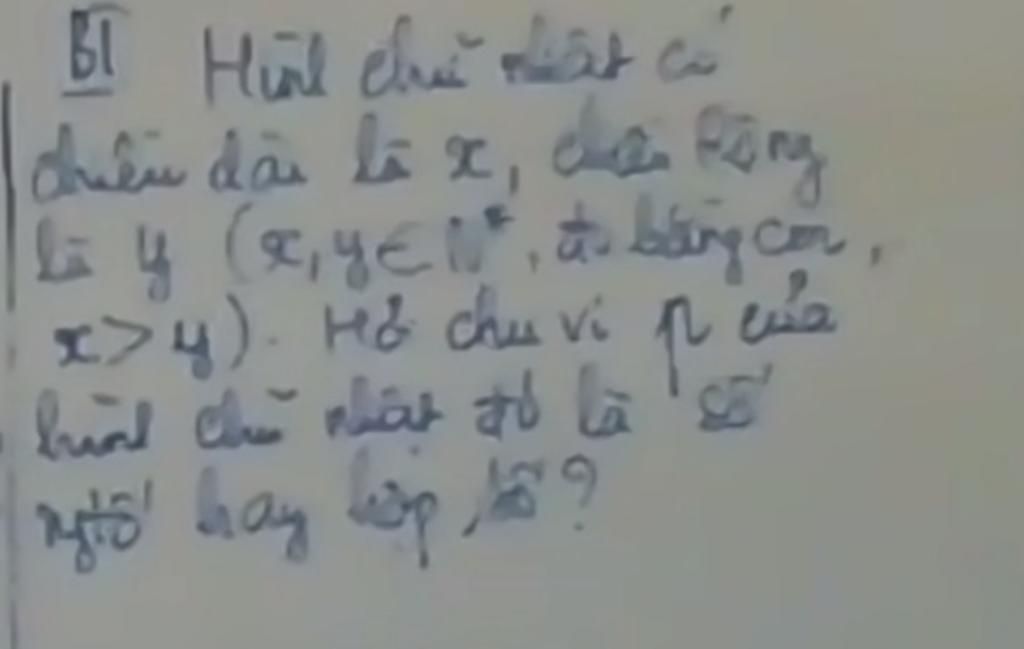 B1 Hình chữ nhật có
chiều dài là x, chiều rộng
là y (x, y ∈ N*, tính bằng cm,
x > y). Hỏi chu vi p của
hình chữ nhật đó là số
ngtố hay hợp số?